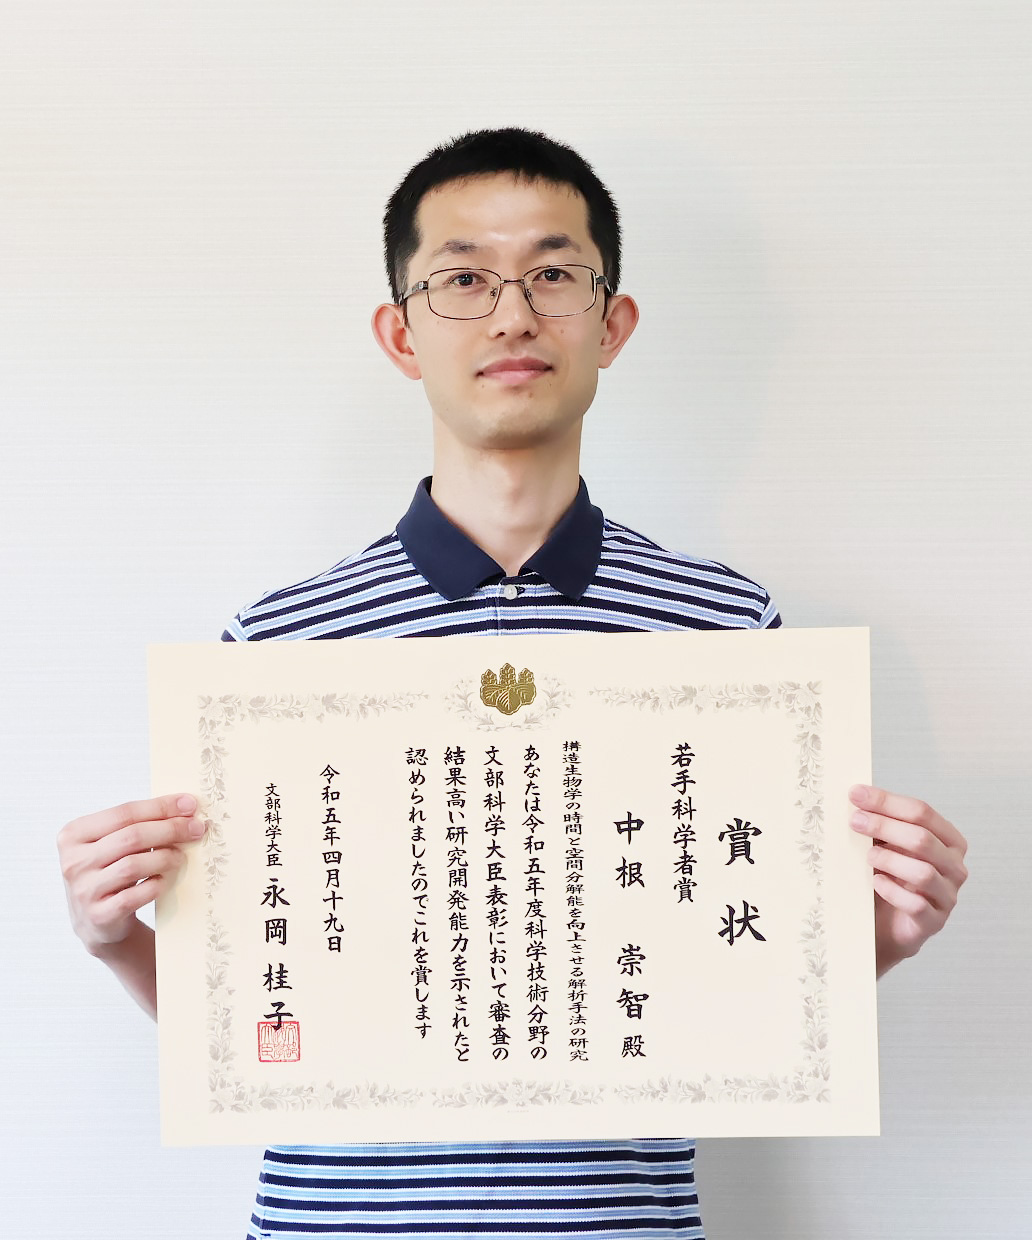 賞状
若手科学者賞
中根 崇智 殿
構造生物学の時間と空間分解能を向上させる解析手法の研究
あなたは令和五年度科学技術分野の
文部科学大臣表彰において審査の
結果高い研究開発能力を示されたと
認められましたのでこれを賞します
令和五年四月十九日
文部科学大臣 永岡 桂子